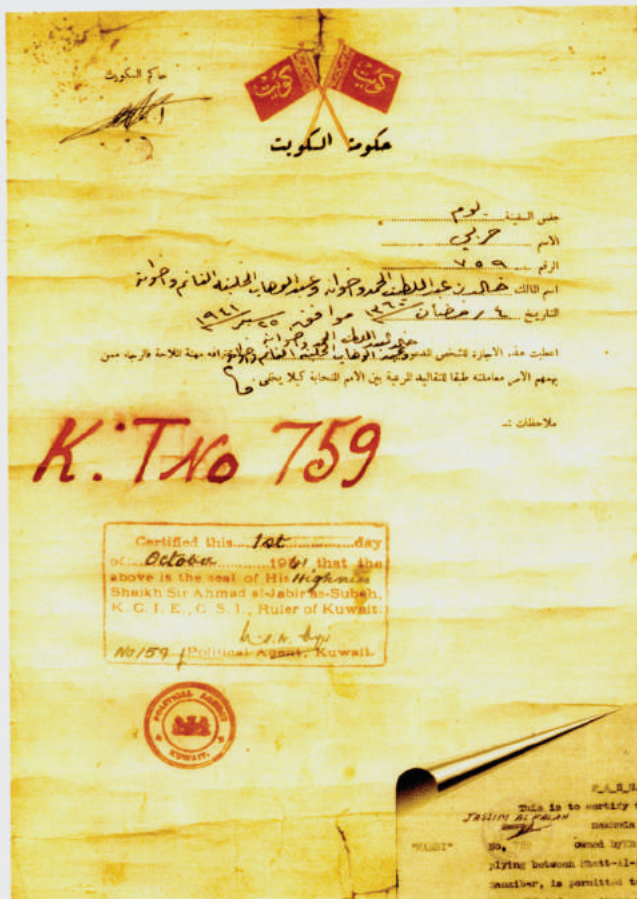 حاكم الكويت
كويت
كويت
حكومة الكويت
جنس السفينة بوم
الاسم حربي
الرقم ٧٥٩
اسم المالك خالد بن عبد اللطيف الحمد واخوانه وعبد الوهاب الخليفه الغانم واخوانه
التاريخ ٤ رمضان ١٣٦٠ موافق ٢٥ ١٩٤١
خالد عبد اللطيف الحمد واخوانه
اعطيت هذه الاجازة للشخص المدعو وعبد الوهاب الخليفه الغانم مهنة الملاحة فالرجاء ممن
يهمهم الأمر معاملته طبقا للتقاليد المرعية بين الأمم المتحابة كيلا يخفى
ملاحظات :ـ
K.T No 759
Certified this 1st day
of October 1941 that the
above is the seal of His Highness
Shaikh Sir Ahmad al-Jabir as-Subah,
K. C. I. E., C. S. I., Ruler of Kuwait.
No/159 Political Agent, Kuwait.
POLITICAL AGENCY
KUWAIT.
This is to certify
JASSIM AL
"HARBI" No. 759 owned by
plying between Shatt-al-
Zanzibar, is permitted to